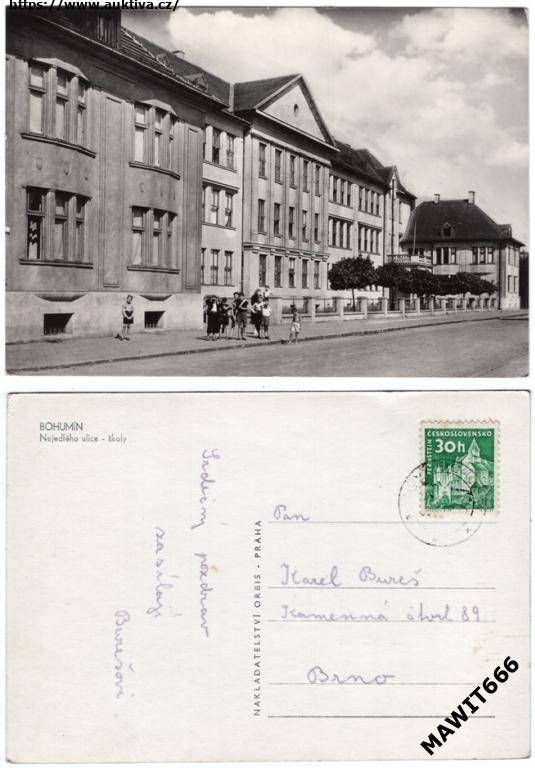 https://www.auktiva.cz/
BOHUMÍN
Nejedlého ulice - školy
Srdečný pozdrav
zasílají
Burešovi
NAKLADATELSTVÍ ORBIS - PRAHA
ČESKOSLOVENSKO
30h
PERNŠTEJN
Pan
Karel Bureš
Kamenná čtvrť 89
Brno
MAWIT666